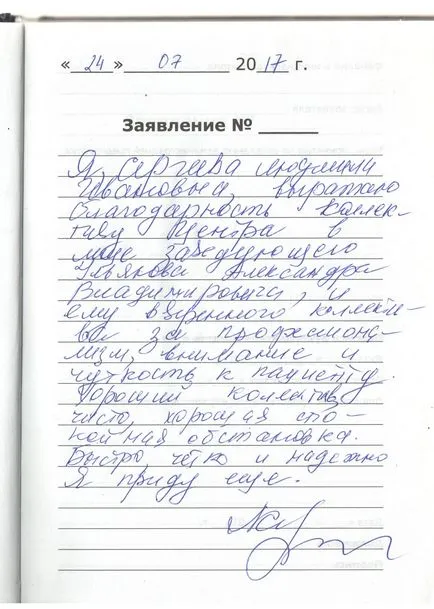 « 24 » 07 2017 г.
Заявление № ______
Я, Сергеева Людмила
Ивановна, выражаю
благодарность коллек-
тиву Центра в
лице заведующего
Ульянова Александра
Владимировича, и
ему вверенного коллекти-
ва за профессиона-
лизм, внимание и
чуткость к пациенту.
Хороший коллектив,
чисто, хорошая спо-
койная обстановка.
Быстро четко и надежно
Я приду еще.